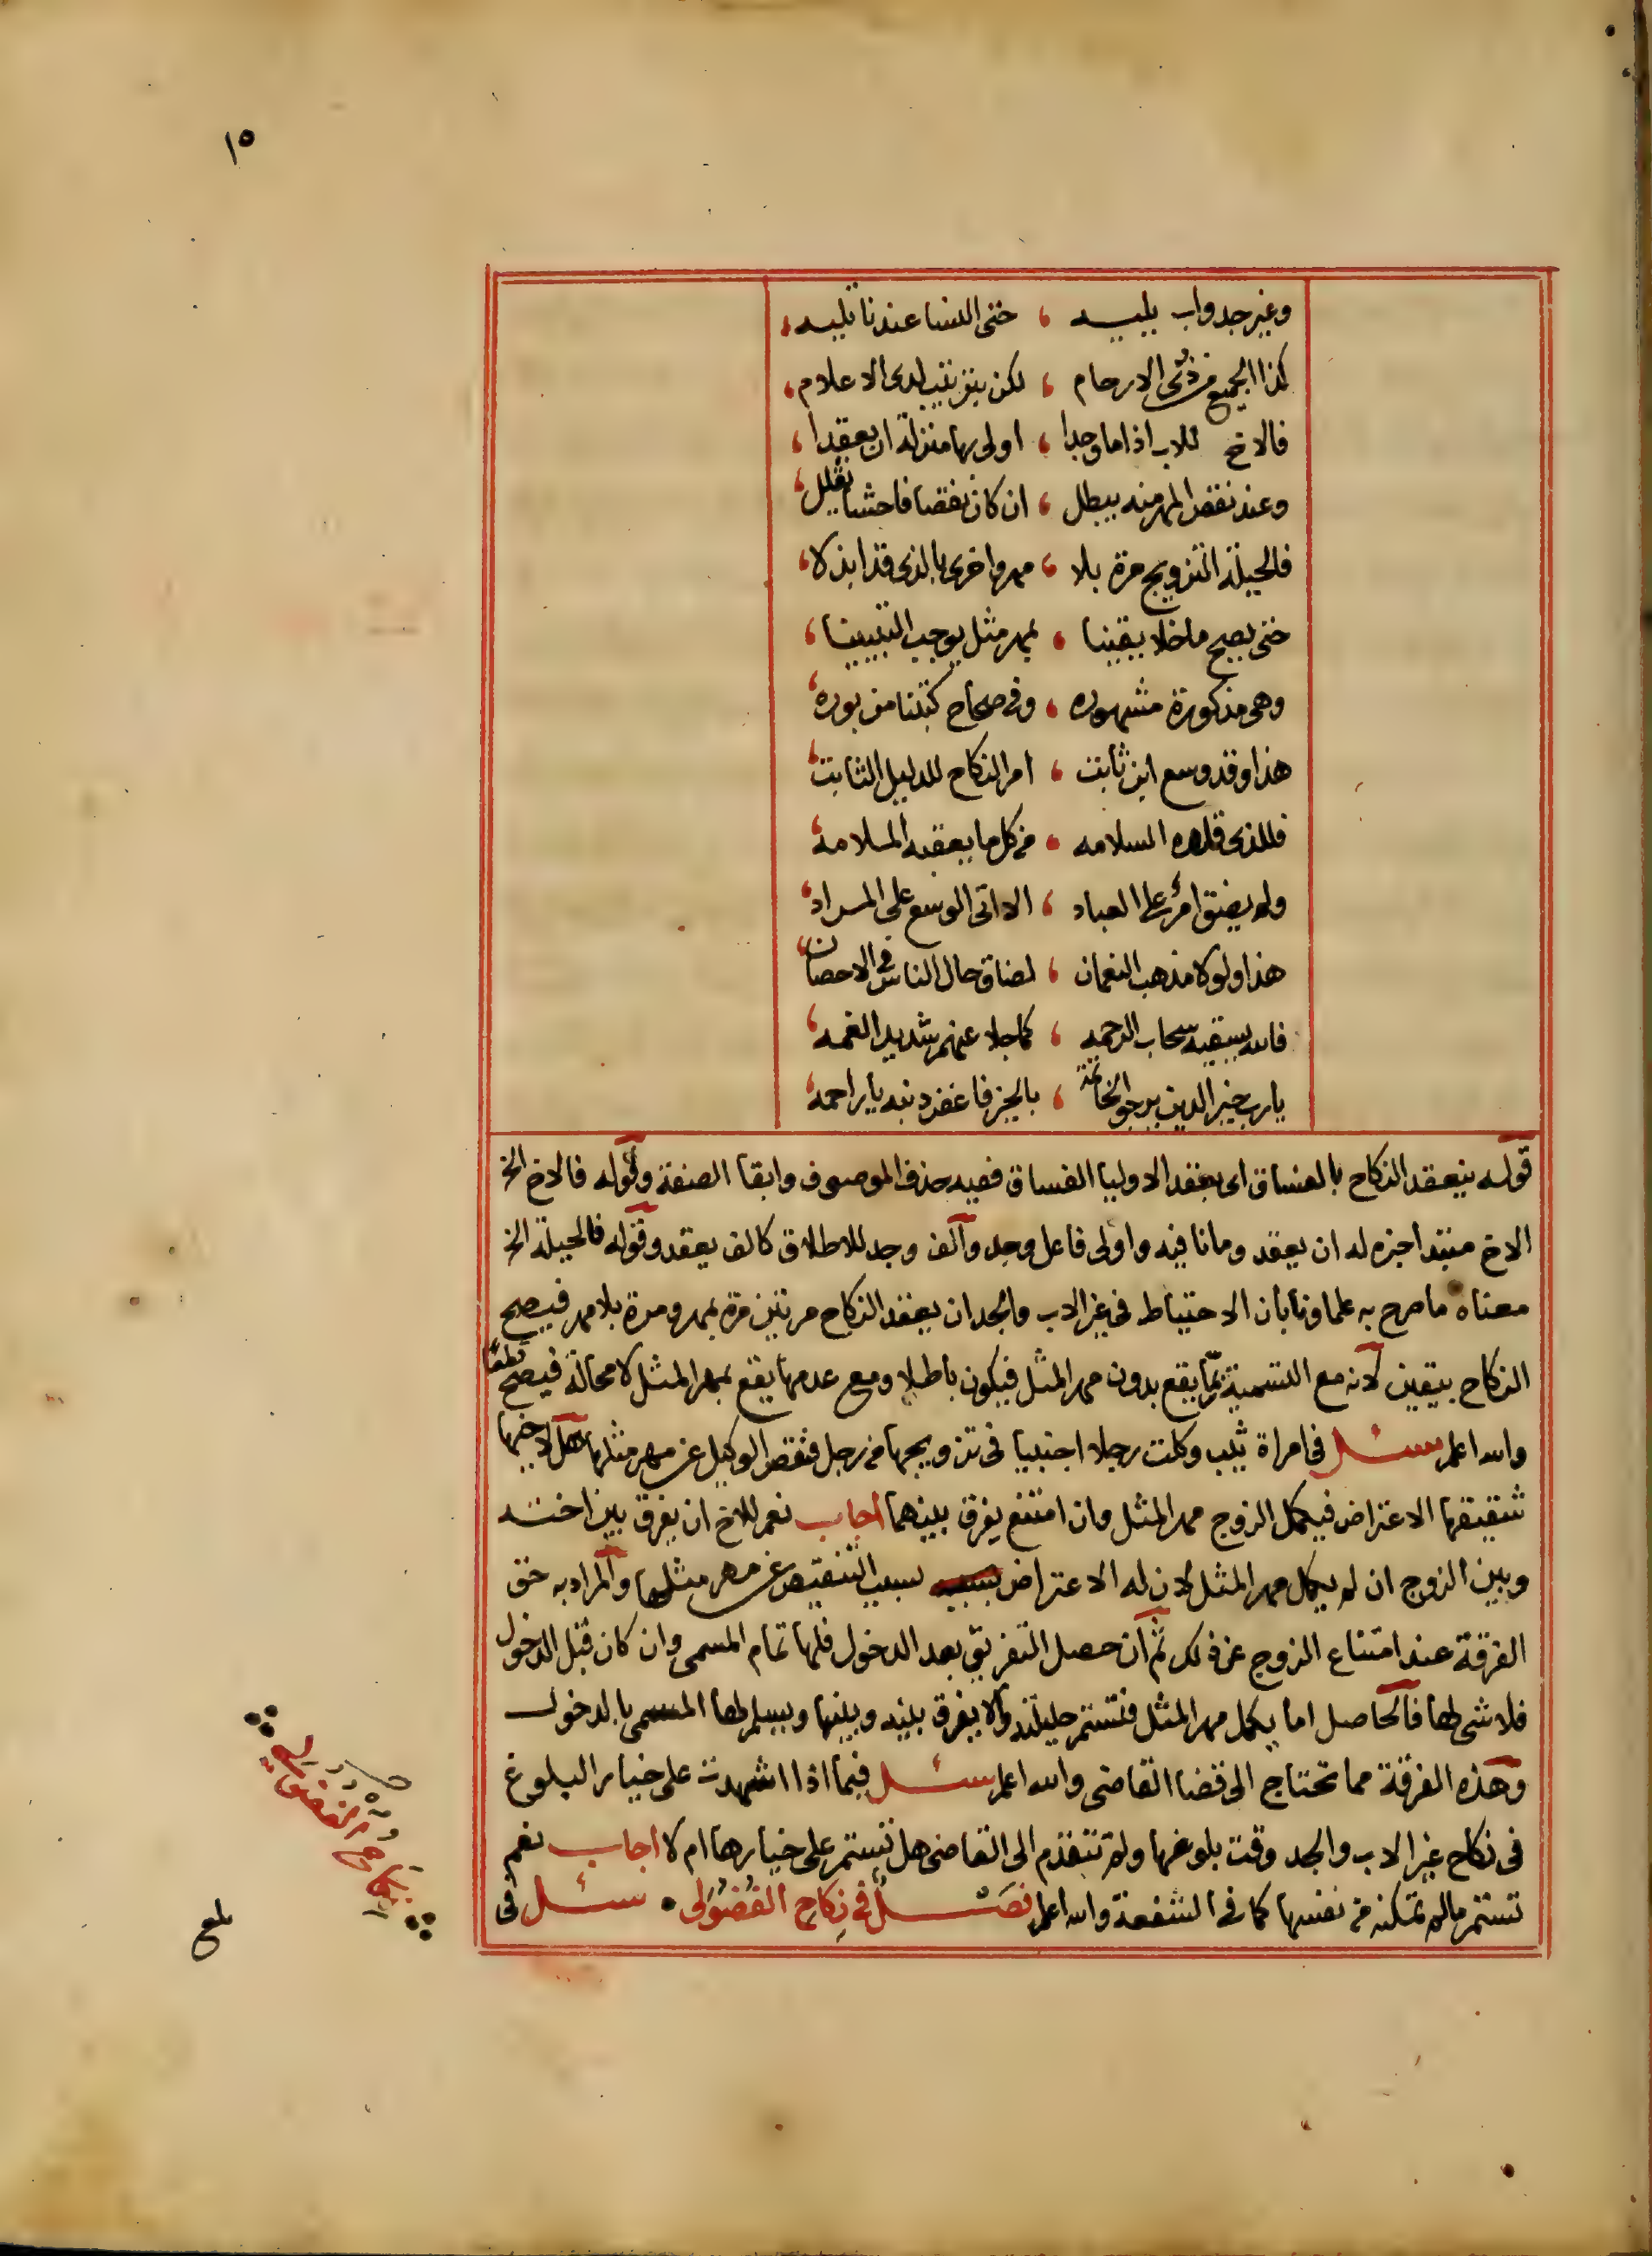 ١٥
وغير جد واب يليه ، حتى النسا عندنا تليه ،
كذا الجميع من ذوى الارحام ، لكن بترتيب لدى الاعلام ،
فالاخ للاب اذا ما وجدا ، اولى بها منزلة ان يعقدا ،
وعند نقص المهر منه يبطل ، ان كان نقصا فاحشا يقلل ،
فالحيلة التزويج مرة بلا ، مهر واخرى بالذى قد ابذلا ،
حتى يصح ما خلا يقينا ، بمهر مثل يوجب التبيينا ،
وهى مذكورة مشهوره ، وفى صحاح كتبنا مزبوره ،
هذا وقد وسع ابن ثابت ، امر النكاح للدليل الثابت ،
فللذى قلده السلامه ، من كل ما يعقبه الملامه ،
ولم يضق امر على العباد ، الا اتى الوسع على المراد ،
هذا ولولا مذهب النعمان ، لضاق حال الناس فى الاحصان ،
فالله يسقيه سحاب الرحمه ، كما جلا عنهم شديد الغمه ،
يارب خير الدين يرجو الخاتمة ، بالخير فاغفر ذنبه يا راحمه ،
قوله ينعقد النكاح بالفساق اى بعقد الاوليا الفساق ففيه حذف الموصوف وابقا الصفة وقوله فالاخ الخ
الاخ مبتدا خبره له ان يعقد وما نافيه واولى فاعل وجد وآلف وجد للاطلاق كالف يعقد وقوله فالحيلة الخ
معناه ما صرح به علماونا بان الاحتياط فى غير الاب والجد ان يعقد النكاح مرتين مرة بمهر ومرة بلا مهر فيصح
النكاح بيقين لآنه مع التسمية ربما يقع بدون مهر المثل فيكون باطلا ومع عدمها يقع بمهر المثل لا محالة فيصح قطعا
والله اعلم سئل فى امراة ثيب وكلت رجلا اجنبيا فى تزويجها من رجل فنقص الوكيل عن مهر مثلها هل لاخيها
شقيقها الاعتراض فيكمل الزوج مهر المثل وان امتنع يفرق بينهما اجاب نعم للاخ ان يفرق بين اخته
وبين الزوج ان لم يكمل مهر المثل لان له الاعتراض بسبب التنقيص عن مهر مثلها والمراد به حق
الفرقة عند امتناع الزوج عن ذلك ثم ان حصل التفريق بعد الدخول فلها تمام المسمى وان كان قبل الدخول
فلا شى لها فالحاصل اما يكمل مهر المثل فتستمر حليلته والا يفرق بينه وبينها ويسلم لها المسمى بالدخول
وهذه الفرقة مما تحتاج الى قضا القاضى والله اعلم سئل فيما اذا اشهدت على خيار البلوغ
فى نكاح غير الاب والجد وقت بلوغها ولم تتقدم الى القاضى هل تستمر على خيارها ام لا اجاب نعم
تستمر ما لم تمكنه من نفسها كما فى الشفعة والله اعلم فصل فى نكاح الفضولى ، سئل فى
نكاح الفضولى
بلغ